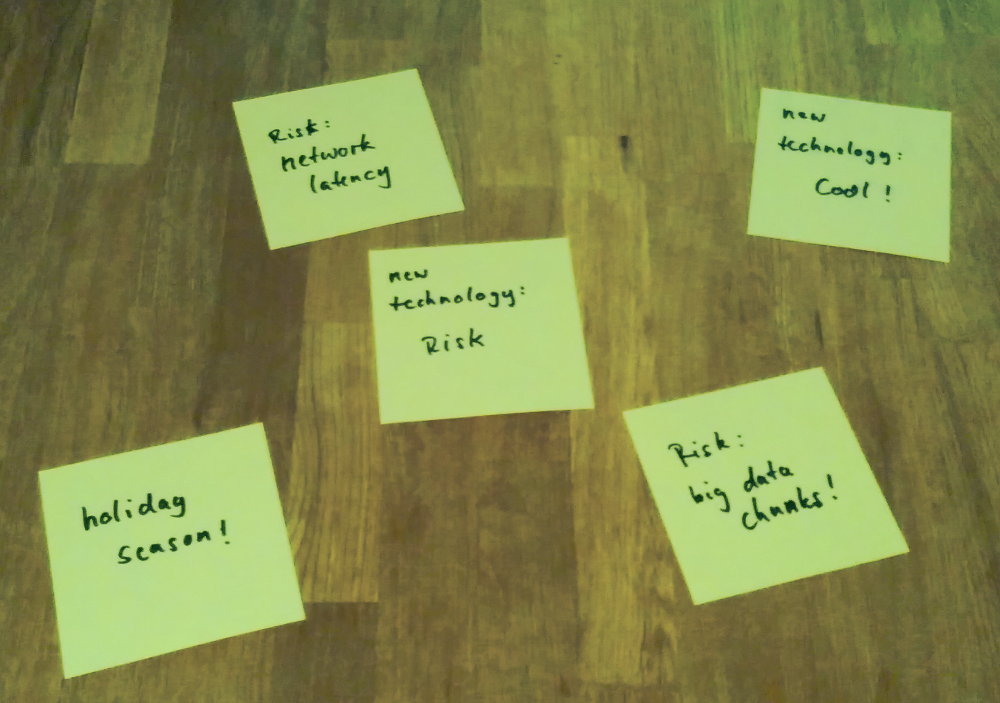 Risk:
network
latency
new
technology:
Cool!
new
technology:
Risk
holiday
season!
Risk:
big data
chunks!